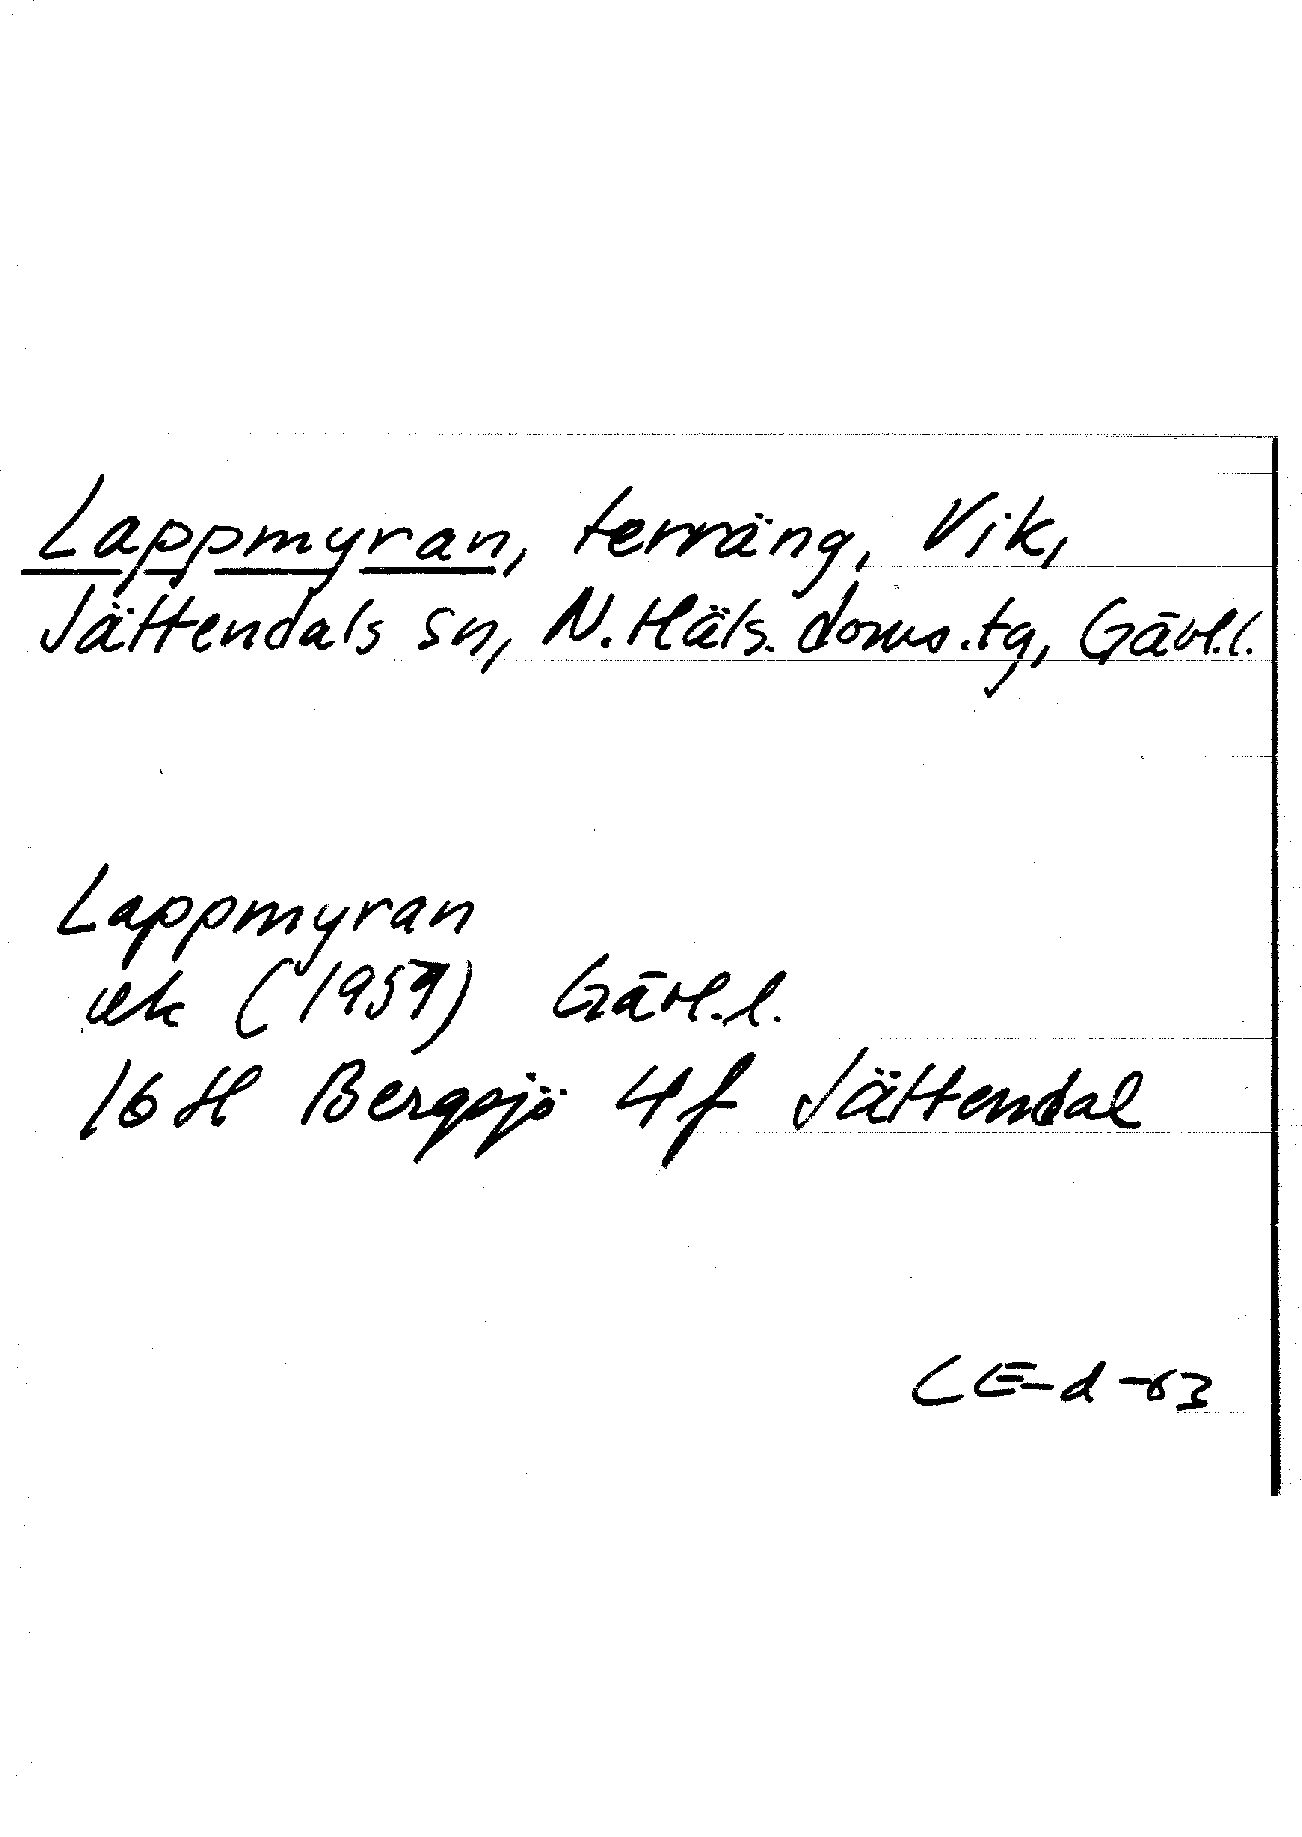 Lappmyran, terräng, Vik,
Jättendals sn, N. Häls. doms.tg, Gävl.l.
Lappmyran
ek (1959) Gävl.l.
16 H Bergsjö 4 f Jättendal
CE-d-63